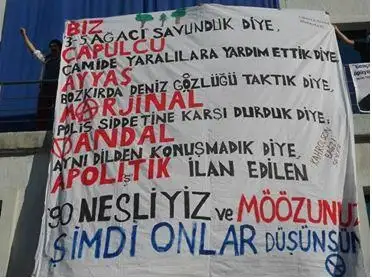 BİZ
3-5 AĞACI SAVUNDUK DİYE,
ÇAPULCU
CAMİDE YARALILARA YARDIM ETTİK DİYE,
AYYAŞ
BOZKIRDA DENİZ GÖZLÜĞÜ TAKTIK DİYE,
MARJİNAL
POLİS ŞİDDETİNE KARŞI DURDUK DİYE,
VANDAL
AYNI DİLDEN KONUŞMADIK DİYE,
APOLİTİK İLAN EDİLEN
90 NESLİYİZ ve MÖÖZUNUZ
ŞİMDİ ONLAR DÜŞÜNSÜN
KAHROLSUN
BAĞZI